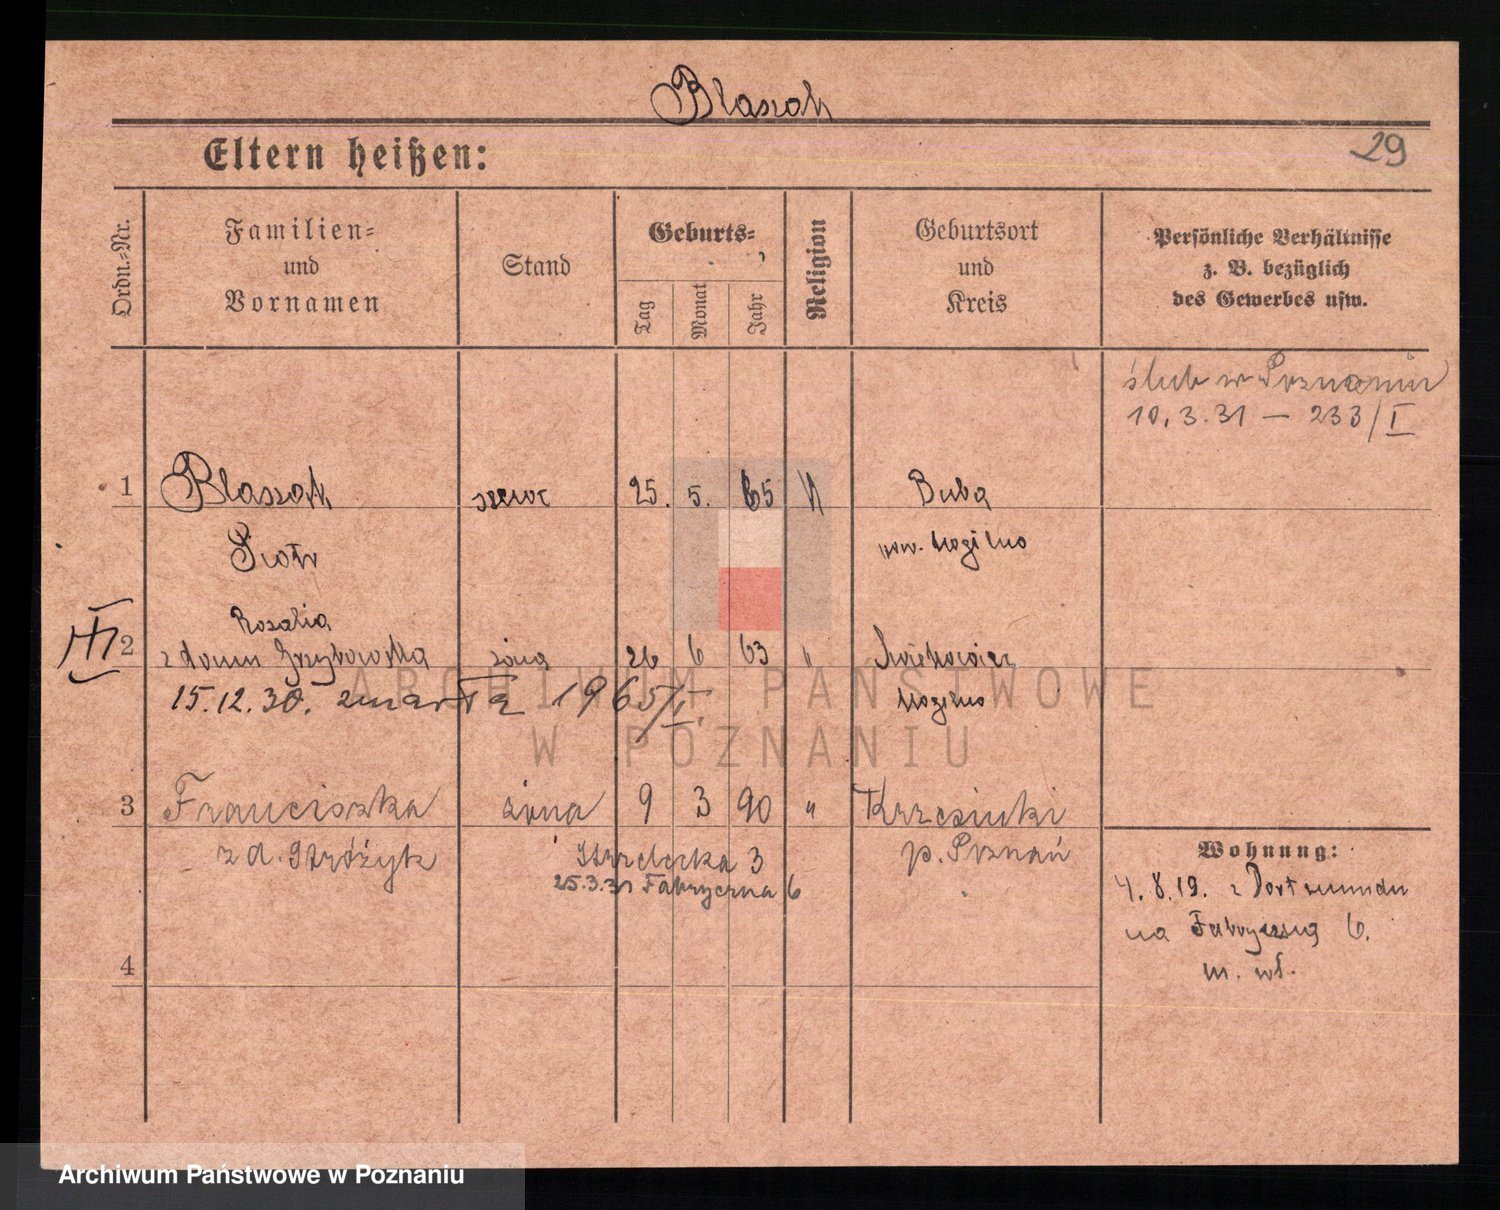 Blaszak
29
Eltern heißen:
Ordn.-Nr.
Familien-
und
Vornamen
Stand
Geburts-
Tag
Monat
Jahr
Religion
Geburtsort
und
Kreis
Persönliche Verhältnisse
z. B. bezüglich
des Gewerbes usw.
ślub w Poznaniu
10.3.31 — 233/I
1 Blaszak szewc 25. 5. 65 Buba
Piotr pow. Mogilno
Rosalia
III 2 z domu Grzybowska żona 26 6 63 "
15.12.30. zmarła 1965/I. Mogilno
3 Franciszka żona 9 3 90 " Krzesinki
z d. Stróżyk Strzelecka 3 p. Poznań
25.3.31 Fabryczna 6
Wohnung:
4.8.19. z Dortmundu
na Fabryczną 6.
m. wł.
4
ARCHIWUM PAŃSTWOWE
W POZNANIU
Archiwum Państwowe w Poznaniu